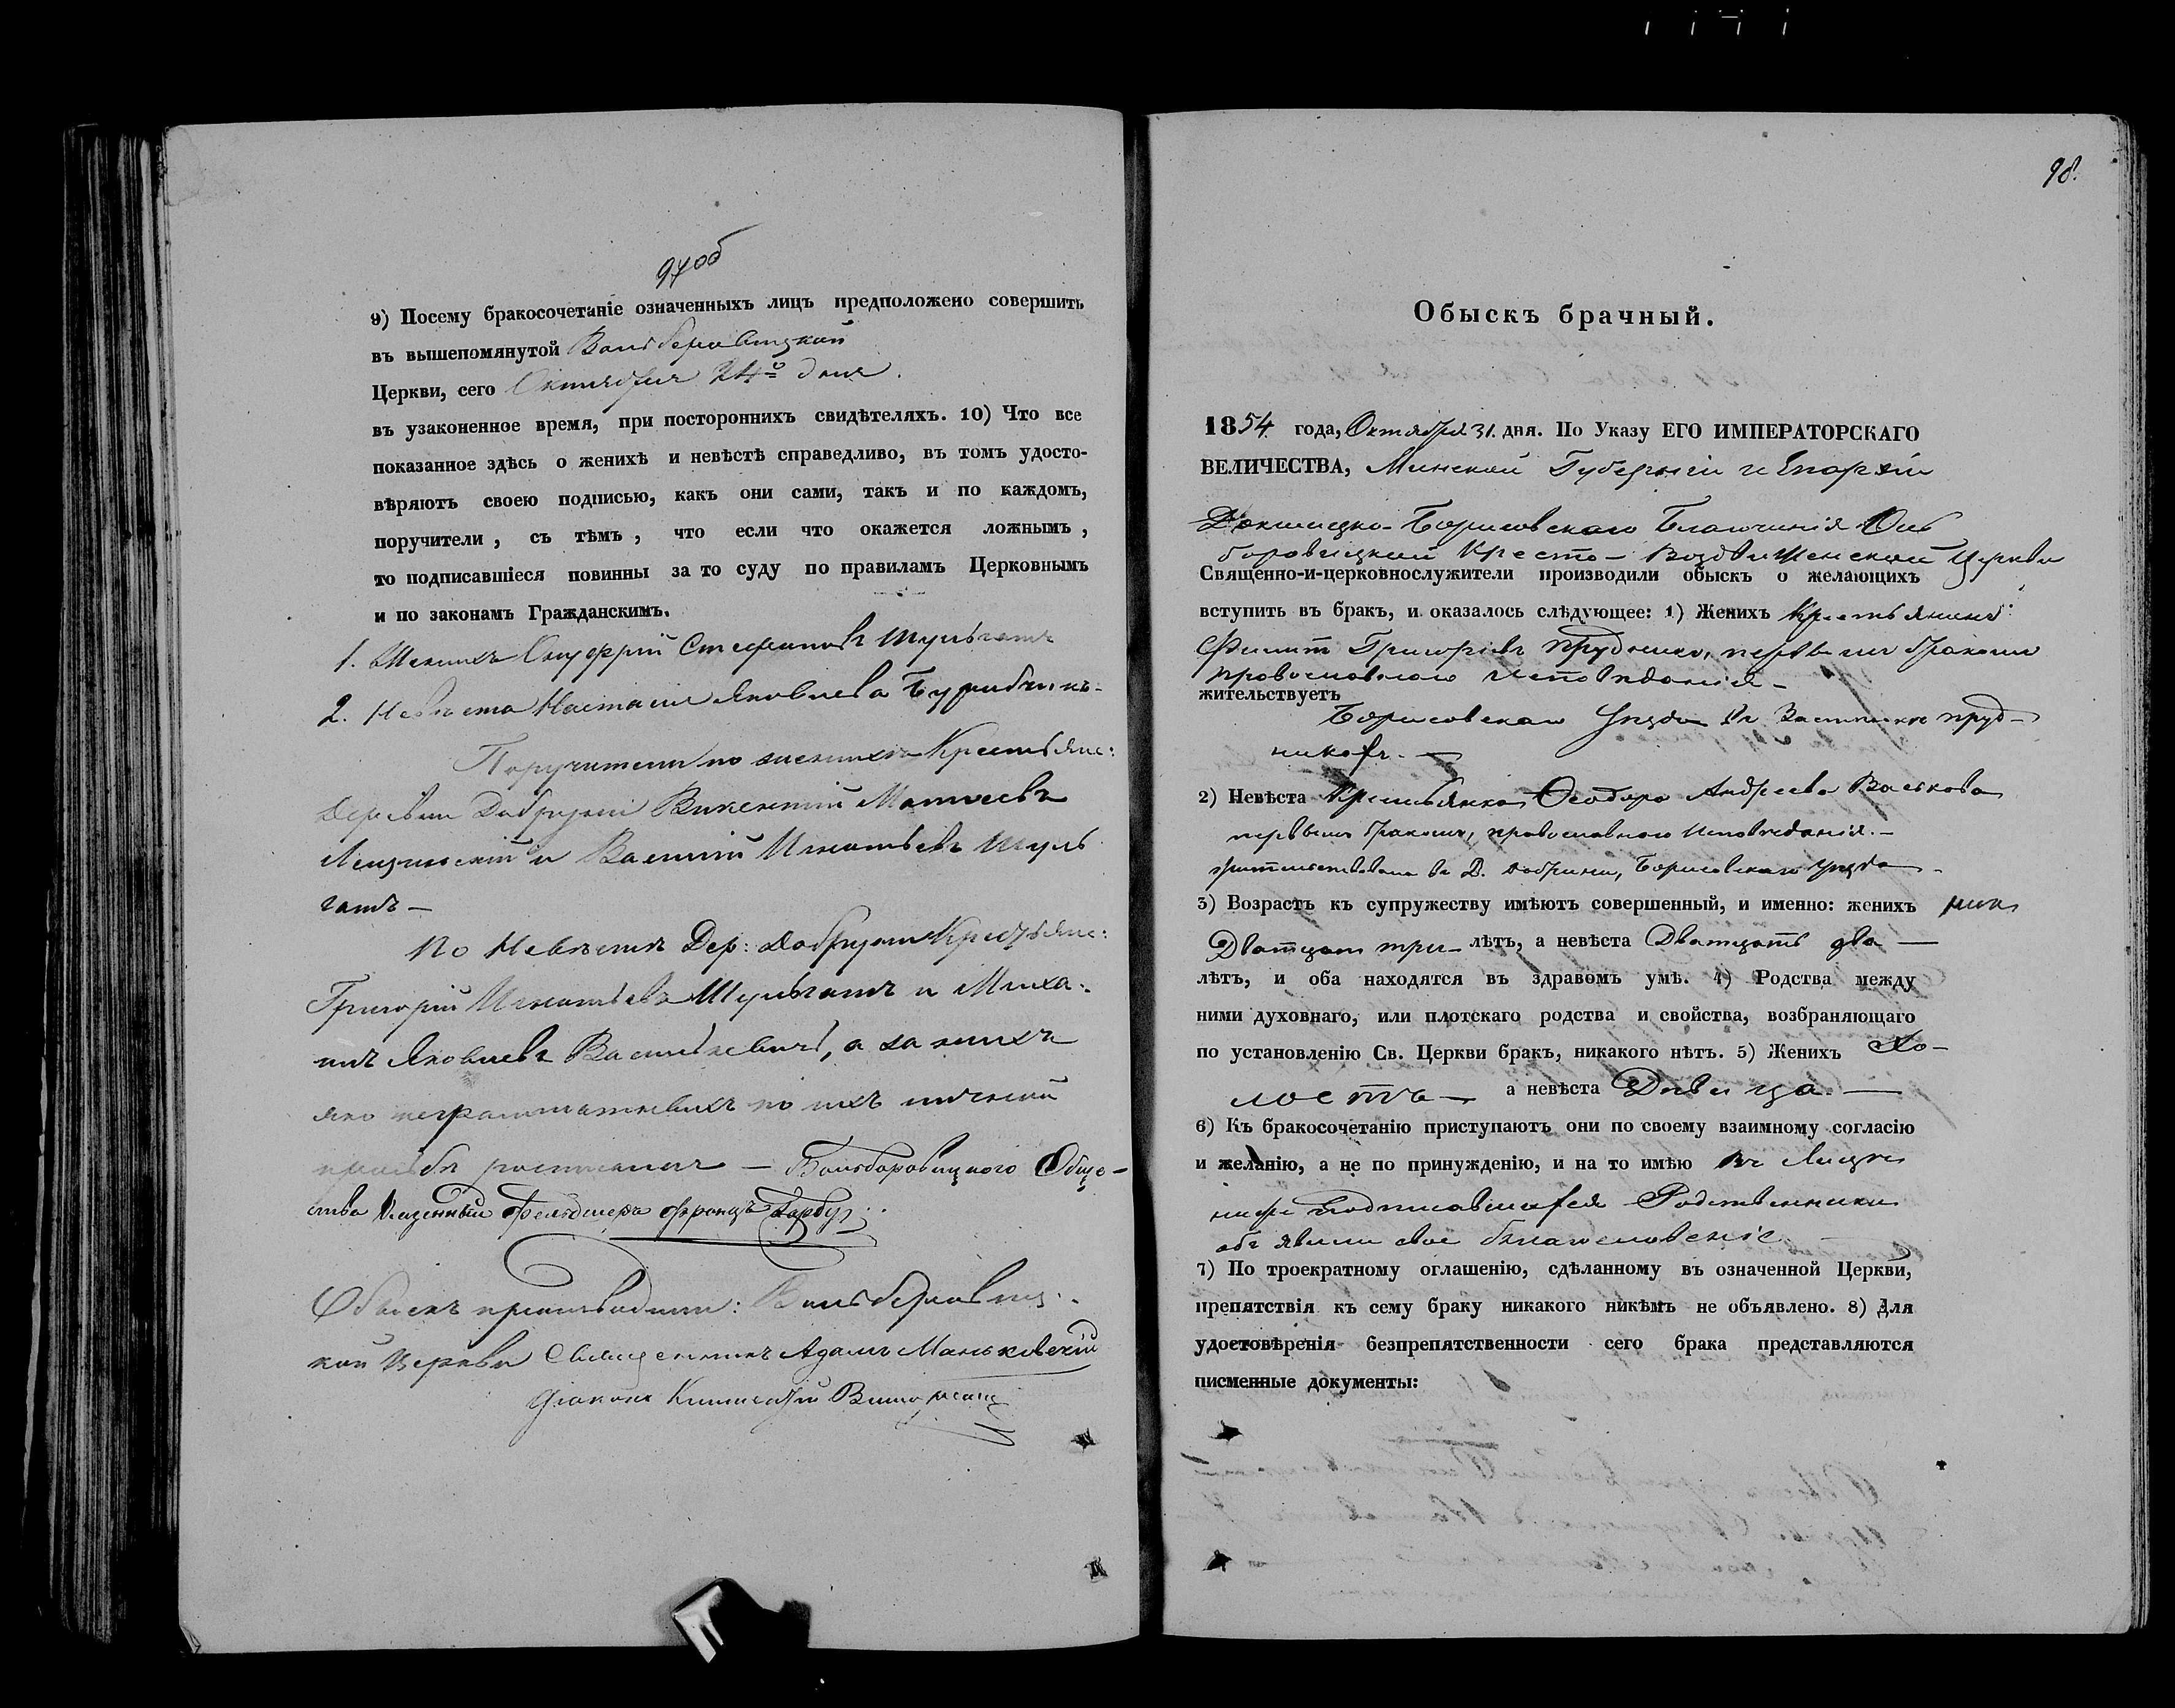 97об
9) Посему бракосочетаніе означенныхъ лицъ предположено совершить
въ вышепомянутой Вольберовицкой
Церкви, сего Октября 24го дня.
въ узаконенное время, при постороннихъ свидѣтеляхъ. 10) Что все
показанное здѣсь о женихѣ и невѣстѣ справедливо, въ томъ удосто-
вѣряютъ своею подписью, какъ они сами, такъ и по каждомъ,
поручители, съ тѣмъ, что если что окажется ложнымъ,
то подписавшіеся повинны за то суду по правиламъ Церковнымъ
и по законамъ Гражданскимъ.
1. Женихъ Онуфрій Стефановъ Шульгатъ
2. Невѣста Настасія Яковлева
Поручители по женихѣ Крестьяне:
Деревни Викентій Матвеевъ
и Василій Игнатьевъ Шуль
гатъ —
По Невѣстѣ Дер: Крестьяне:
Григорій Игнатьевъ Шульгатъ и Миха-
илъ Яковлевъ Василькевичъ, а за нихъ
яко неграмотныхъ по ихъ личной
прозьбѣ росписался — Вольборовицкого Обще-
ства Казенный Фельдшеръ Францъ
Обыскъ производили: Вольберовиц-
кой Церкви Священникъ Адамъ Маньковскій
98.
Обыскъ брачный.
1854. года, Октября 31. дня. По Указу ЕГО ИМПЕРАТОРСКАГО
ВЕЛИЧЕСТВА, Минской Губерніи и Епархіи
Докшицко-Борисовскаго Благочинія Оль
боровицкой Кресто-Воздвиженской Церкви
Священно-и-церковнослужители производили обыскъ о желающихъ
вступить въ бракъ, и оказалось слѣдующее: 1) Женихъ Крестьянинъ
Филипъ Григоріевъ Прудникъ, первымъ бракомъ
Православного Исповѣданія —
жительствуетъ
Борисовскаго Уѣзда въ Застѣнкѣ Пруд-
никахъ. —
2) Невѣста Крестьянка Ѳеодора Андреева Васькова
первымъ бракомъ, православного Исповѣданія. —
жительствовала въ Д. Борисовскаго Уѣзда
3) Возрастъ къ супружеству имѣютъ совершенный, и именно: женихъ
Дватцать три — лѣтъ, а невѣста Дватцать два —
лѣтъ, и оба находятся въ здравомъ умѣ. 4) Родства между
ними духовнаго, или плотскаго родства и свойства, возбраняющаго
по установленію Св. Церкви бракъ, никакого нѣтъ. 5) Женихъ Хо-
лостъ — а невѣста Дѣвица. —
6) Къ бракосочетанію приступаютъ они по своему взаимному согласію
и желанію, а не по принужденію, и на то имѣю
ниже подписавшихся Родственники
объявили свое благословеніе
7) По троекратному оглашенію, сдѣланному въ означенной Церкви,
препятствія къ сему браку никакого никѣмъ не объявлено. 8) Для
удостовѣренія безпрепятственности сего брака представляются
писменные документы: